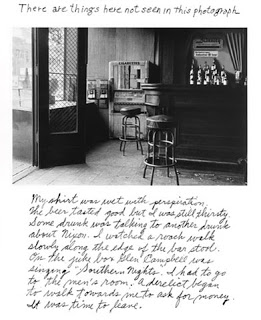 There are things here not seen in this photograph
CIGARETTES
My shirt was wet with perspiration.
The beer tasted good but I was still thirsty.
Some drunk was talking to another drunk
about Nixon. I watched a roach walk
slowly along the edge of the bar stool.
On the juke box Glen Campbell was
singing "Southern Nights". I had to go
to the men's room. A derelict began
to walk towards me to ask for money.
It was time to leave.